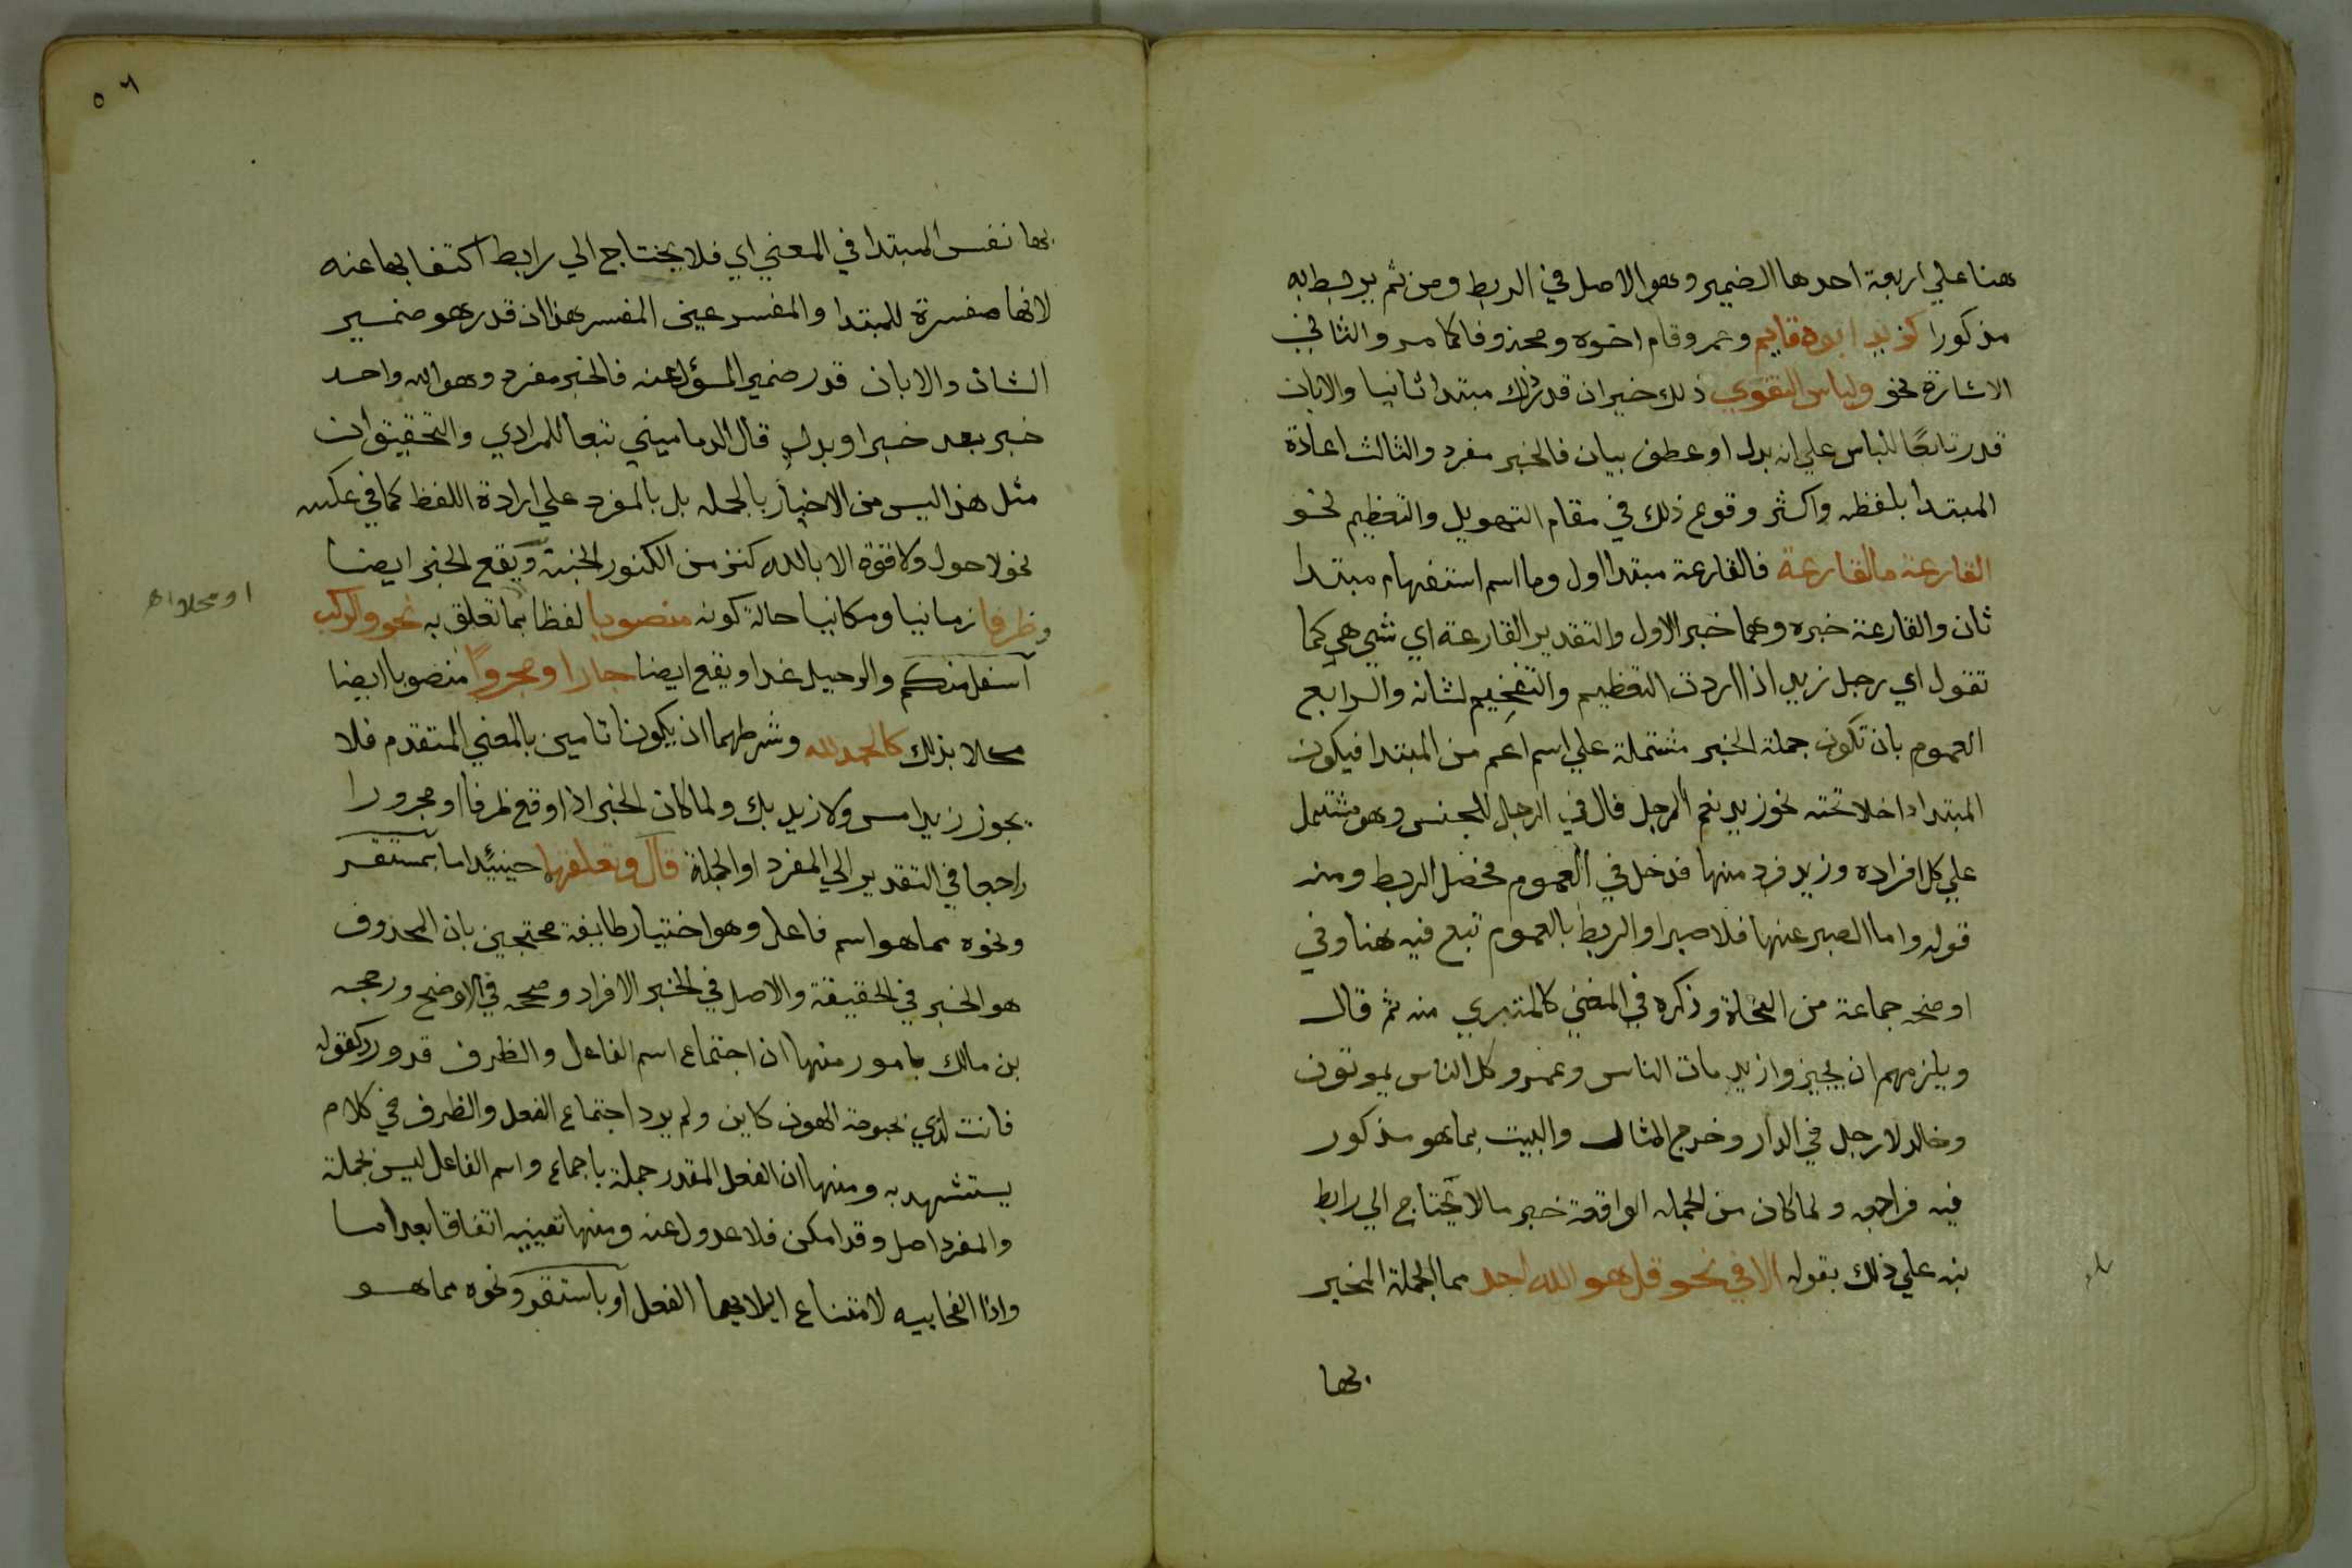 هنا علي اربعة احدها الضمير وهو الاصل في الربط ومن ثم يربط به
مذكورا كزيد ابوه قايم وعمرو قام اخوه ومحذوفا كما مر والثاني
الاشارة نحو ولباس التقوي ذلك خير ان قدر ذلك مبتدا ثانيا والا بان
قدر تابعًا للباس علي انه بدل او عطف بيان فالخبر مفرد والثالث اعادة
المبتدا بلفظه واكثر وقوع ذلك في مقام التهويل والتعظيم نحو
القارعة ما القارعة فالقارعة مبتدا اول وما اسم استفهام مبتدا
ثان والقارعة خبره وهما خبر الاول والتقدير القارعة اي شي هي كما
تقول اي رجل زيد اذا اردت التعظيم والتفخيم لشانه والرابع
العموم بان تكون جملة الخبر مشتملة علي اسم اعم من المبتدا فيكون
المبتدا داخلا تحته نحو زيد نعم الرجل فال في الرجل للجنس وهو مشتمل
علي كل افراده وزيد فرد منها فدخل في العموم فحصل الربط ومنه
قوله واما الصبر عنها فلا صبرا والربط بالعموم تبع فيه هنا وفي
اوضحه جماعة من النحاة وذكره في المغني كالمتبري منه ثم قال
ويلزمهم ان يجيزوا زيد مات الناس وعمرو كل الناس يموتون
وخالد لا رجل في الدار وخرج المثال والبيت بما هو مذكور
فيه فراجعه ولما كان من الجمله الواقعة خبر ما لا يحتاج الي رابط
نبه علي ذلك بقوله الا في نحو قل هو الله احد مما الجملة المخبر
بها
٥٦
بها نفس المبتدا في المعني اي فلا يحتاج الي رابط اكتفا بها عنه
لانها مفسرة للمبتدا والمفسر عين المفسر هذا ان قدر هو ضمير
الشان والا بان قدر ضمير المسؤل عنه فالخبر مفرد وهو الله واحد
خبر بعد خبر او بدل قال الدماميني تبعا للمرادي والتحقيق ان
مثل هذا ليس من الاخبار بالجمله بل بالمفرد علي ارادة اللفظ كما في عكسه
نحو لا حول ولا قوة الا بالله كنز من الكنوز الجنة ويقع الخبر ايضا
ظرفا زمانيا ومكانيا حالة كونه منصوبا لفظا بما تعلق به نحو والركب
او محلا اه
اسفل منكم والرحيل غدا ويقع ايضا جارا ومجرورًا منصوبا ايضا
محلا بذلك كالحمد لله وشرطهما ان يكونا تامين بالمعني المتقدم فلا
يجوز زيد امس ولا زيد بك ولما كان الخبر اذا وقع ظرفا او مجرورا
راجعا في التقدير الي المفرد او الجملة قال وتعلقهما حينيئد اما بمستقر
ونحوه مما هو اسم فاعل وهو اختيار طايفة محتجين بان المحذوف
هو الخبر في الحقيقة والاصل في الخبر الافراد وصححه في الاوضح ورجحه
بن مالك بامور منها ان اجتماع اسم الفاعل والظرف قد ورد كقوله
فانت لدي بحبوحة الهون كاين ولم يرد اجتماع الفعل والظرف في كلام
يستشهد به ومنها ان الفعل المقدر جملة باجماع واسم الفاعل ليس بجملة
والمفرد اصل وقد امكن فلا عدول عنه ومنها تعيينه اتفاقا بعد اما
واذا الفجاييه لامتناع ايلايهما الفعل او باستقر ونحوه مما هو